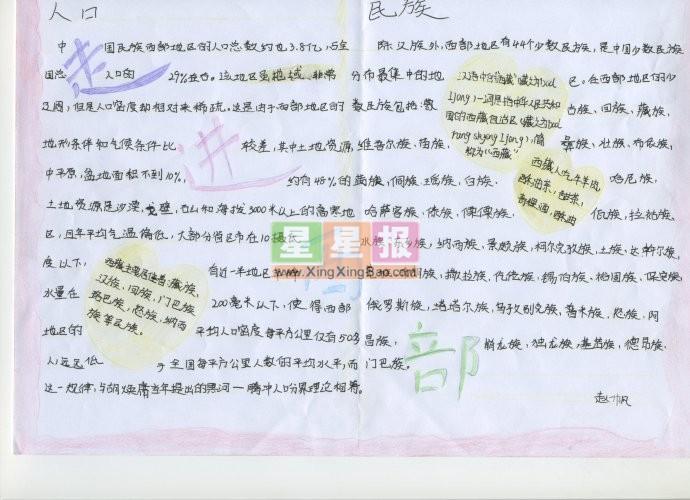 人口
中国民族西部地区的人口总数约为3.8亿,占全
国总人口的29%左右。该地区虽地域非常
辽阔,但是人口密度却相对来稀疏。这是由于西部地区的
地形条件和气候条件比较差,其中土地资源
中平原,盆地面积不到10%,约有48%的
土地资源是沙漠,戈壁,石山和海拔3000米以上的高寒地
区,且年平均气温偏低,大部分省区市在10摄氏
度以下,有近一半地区
水量在200毫米以下,使得西部
地区的平均人口密度每平方公里仅有50多
人,远远低于全国每平方公里人数的平均水平,而
这一规律,与胡焕庸当年提出的黑河—腾冲人口分界理论相符。
西藏主要居住着:藏族、
汉族、回族、门巴族
珞巴族、怒族、纳西
族等民族。
走
进
西
部
民族
除汉族外,西部地区有44个少数民族,是中国少数民族
分布最集中的地区。在西部地区的少
数民族包括:
古族、回族、藏族、
维吾尔族、苗族、彝族、壮族、布依族、
族、侗族、瑶族、白族、哈尼族、
哈萨克族、傣族、傈僳族、佤族、拉祜族、
水族、东乡族、纳西族、景颇族、柯尔克孜族、土族、达斡尔族、
族、撒拉族、仡佬族、锡伯族、裕固族、保安族、
俄罗斯族、塔塔尔族、乌孜别克族、普米族、怒族、阿
昌族、独龙族、基诺族、德昂族、
门巴族。
汉语中的"西藏"
西藏人吃牛羊肉
酥油茶、甜茶、
青稞酒、酥油
星星报
www.XingXingBao.com